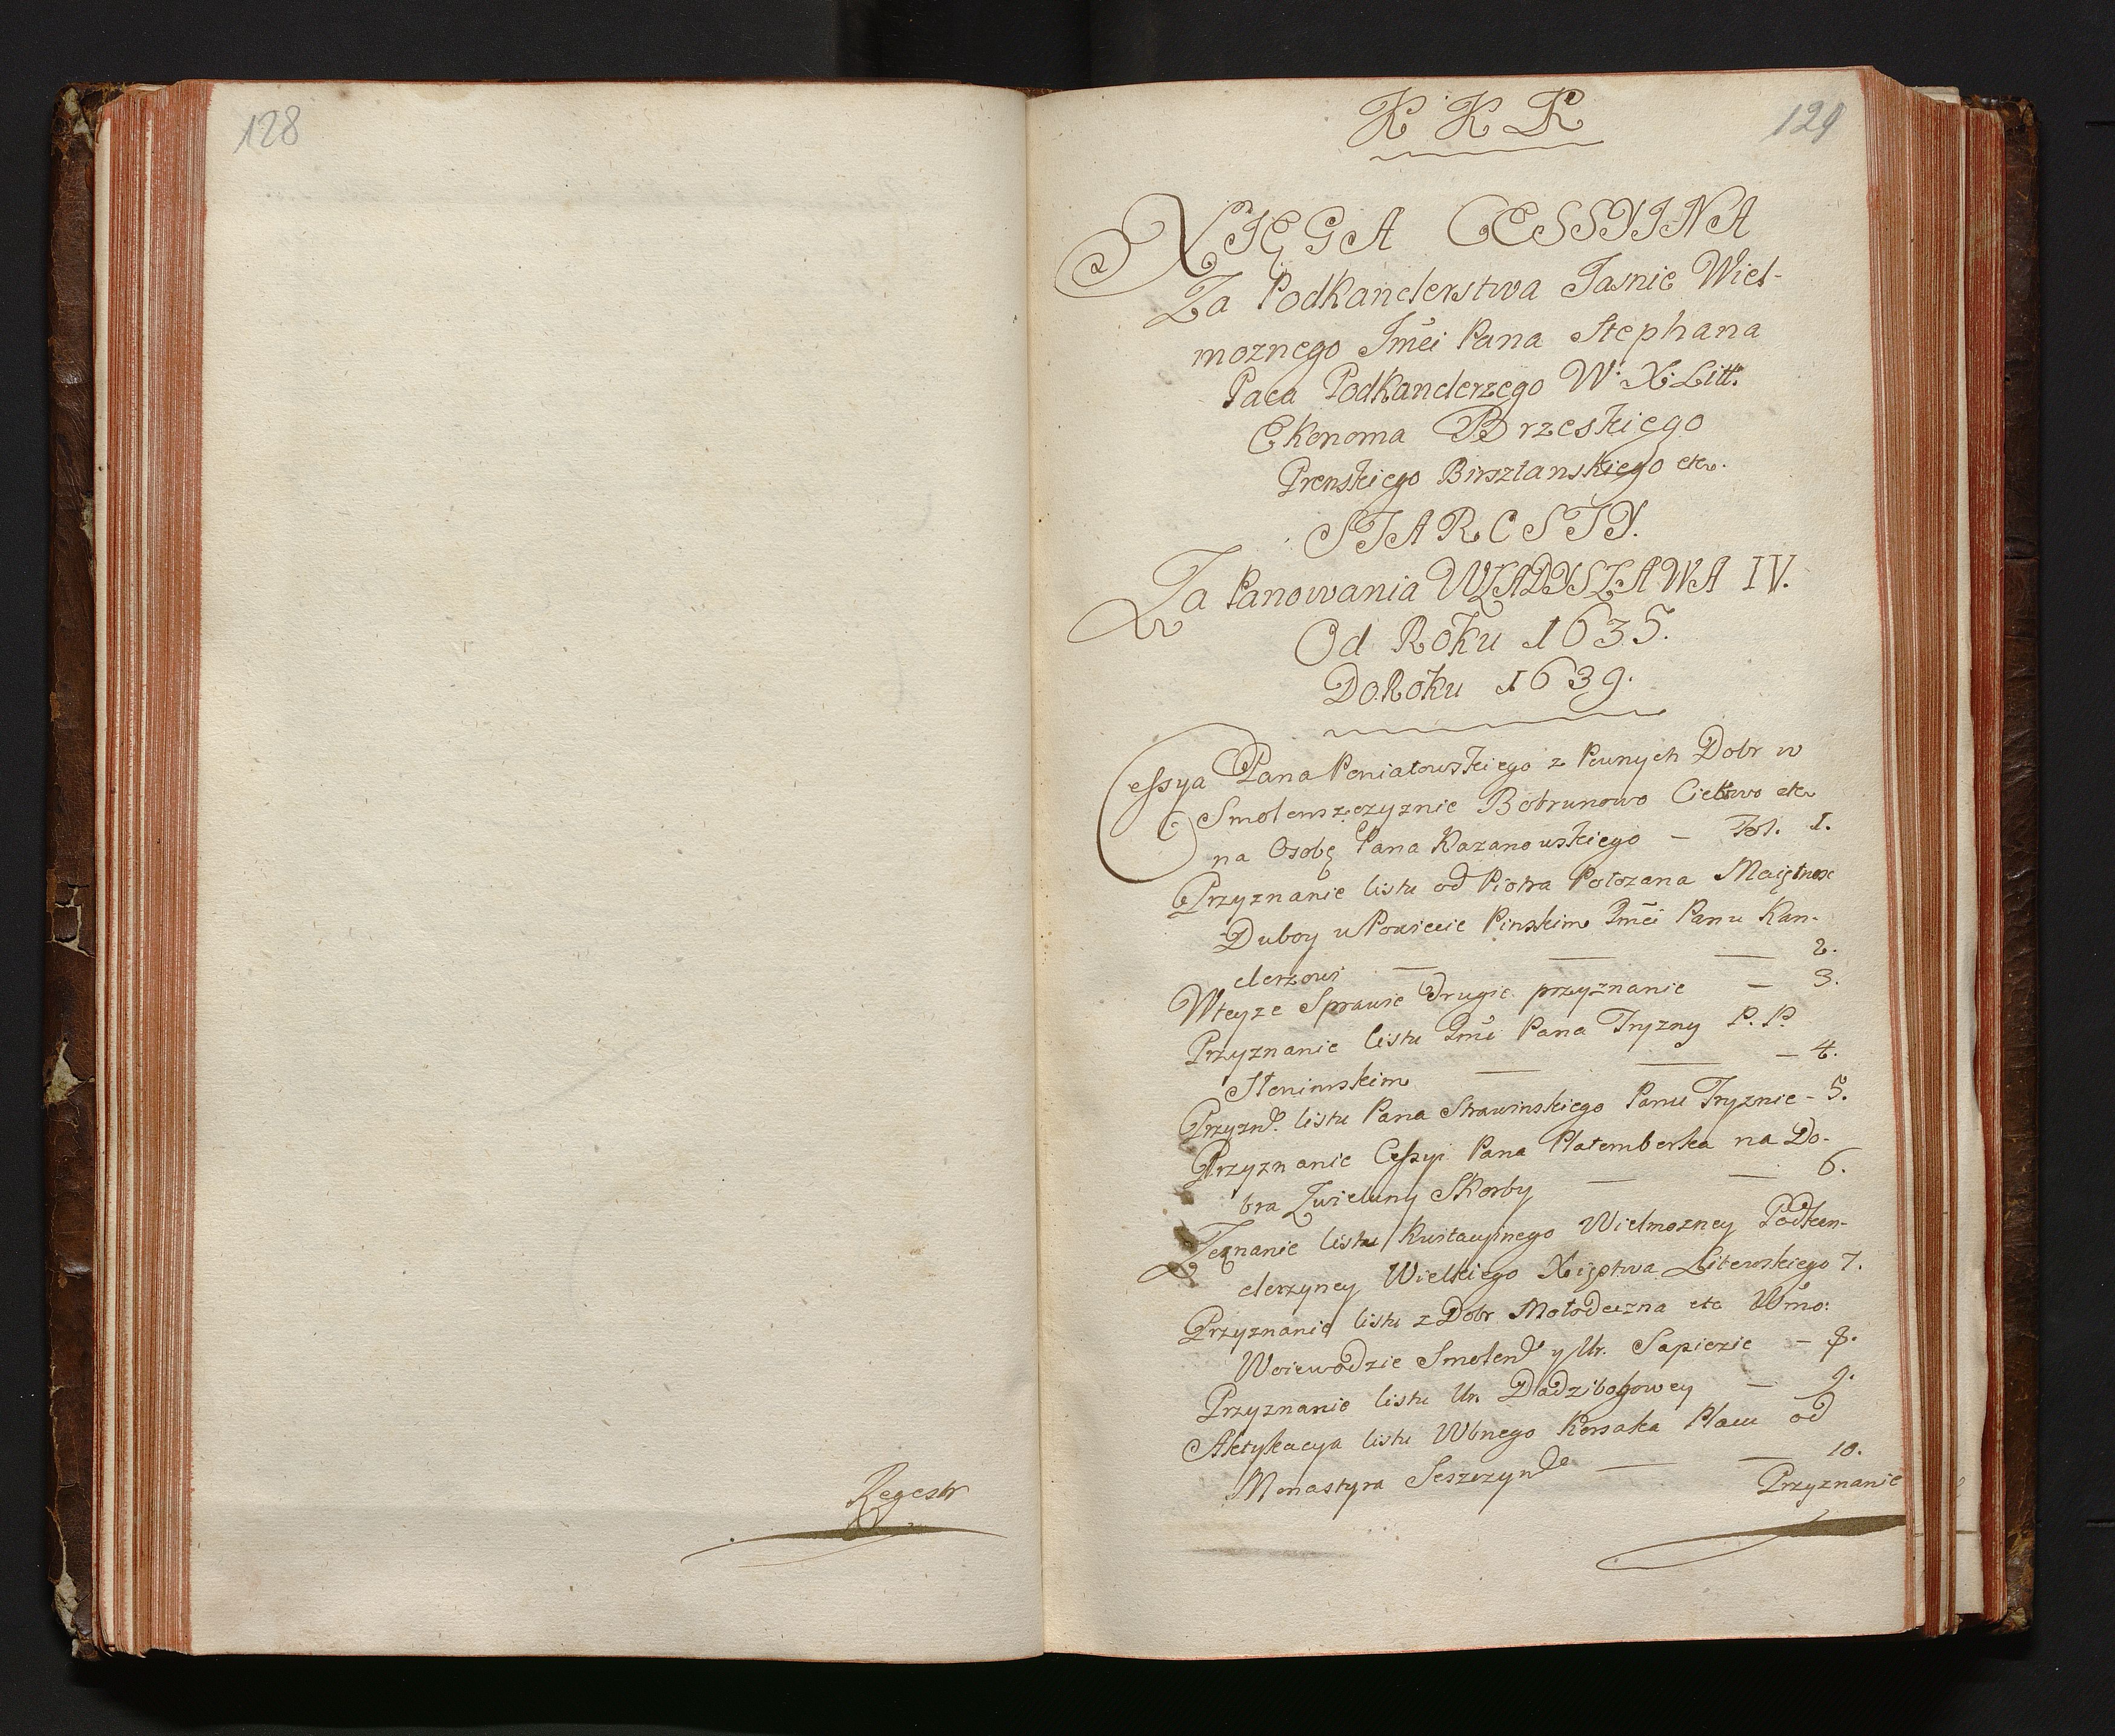 128
Regestr
129
K K K
XIĘGA CESSYINA
Za Podkanclerstwa Jasnie Wiel-
moznego Jmci Pana Stephana
Paca Podkanclerzego W: X: Litt:
Ekonoma Brzeskiego
Prenskiego Birsztanskiego etc.
STAROSTY.
Za Panowania WŁADYSŁAWA IV.
Od Roku 1635.
Do Roku 1639.
Cessya Pana Poniatowskiego z Pewnych Dobr w
Smolenszczyznie Bobrunowo etc
na Osobę Pana Kazanowskiego — Fol. 1.
Przyznanie listu od Piotra Połozana Maiętnosc
Duboy w Powiecie Pinskim Jmci Panu Kan-
clerzowi — — — 2.
Wteyze Sprawie drugie przyznanie — 3.
Przyznanie listu Jmci Pana Tryzny P. P.
Słonimskim — — — 4.
Przyzn. listu Pana Strawinskiego Panu Tryznie - 5.
Przyznanie Cessyi Pana Platemberka na Do-
bra Zwieluny Skorby — — 6.
Zeznanie listu kwitacyinego Wielmozney Podkan-
clerzyney Wielkiego Xięstwa Litewskiego 7.
Przyznanie listu z Dobr Mołodeczna etc Wmo:
Woiewodzie Smolen y Ur. Sapiezie — 8.
Przyznanie listu Ur. Dadzibogowey — 9.
Aktykacya listu Wbnego Korsaka Placu od
Monastyra — — 10.
Przyznanie